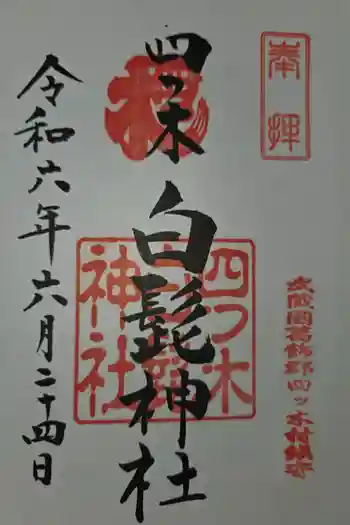 奉拝
武蔵国葛飾郡四ッ木村鎮守
四ツ木
白髭神社
四つ木
白髭
神社
令和六年六月二十四日